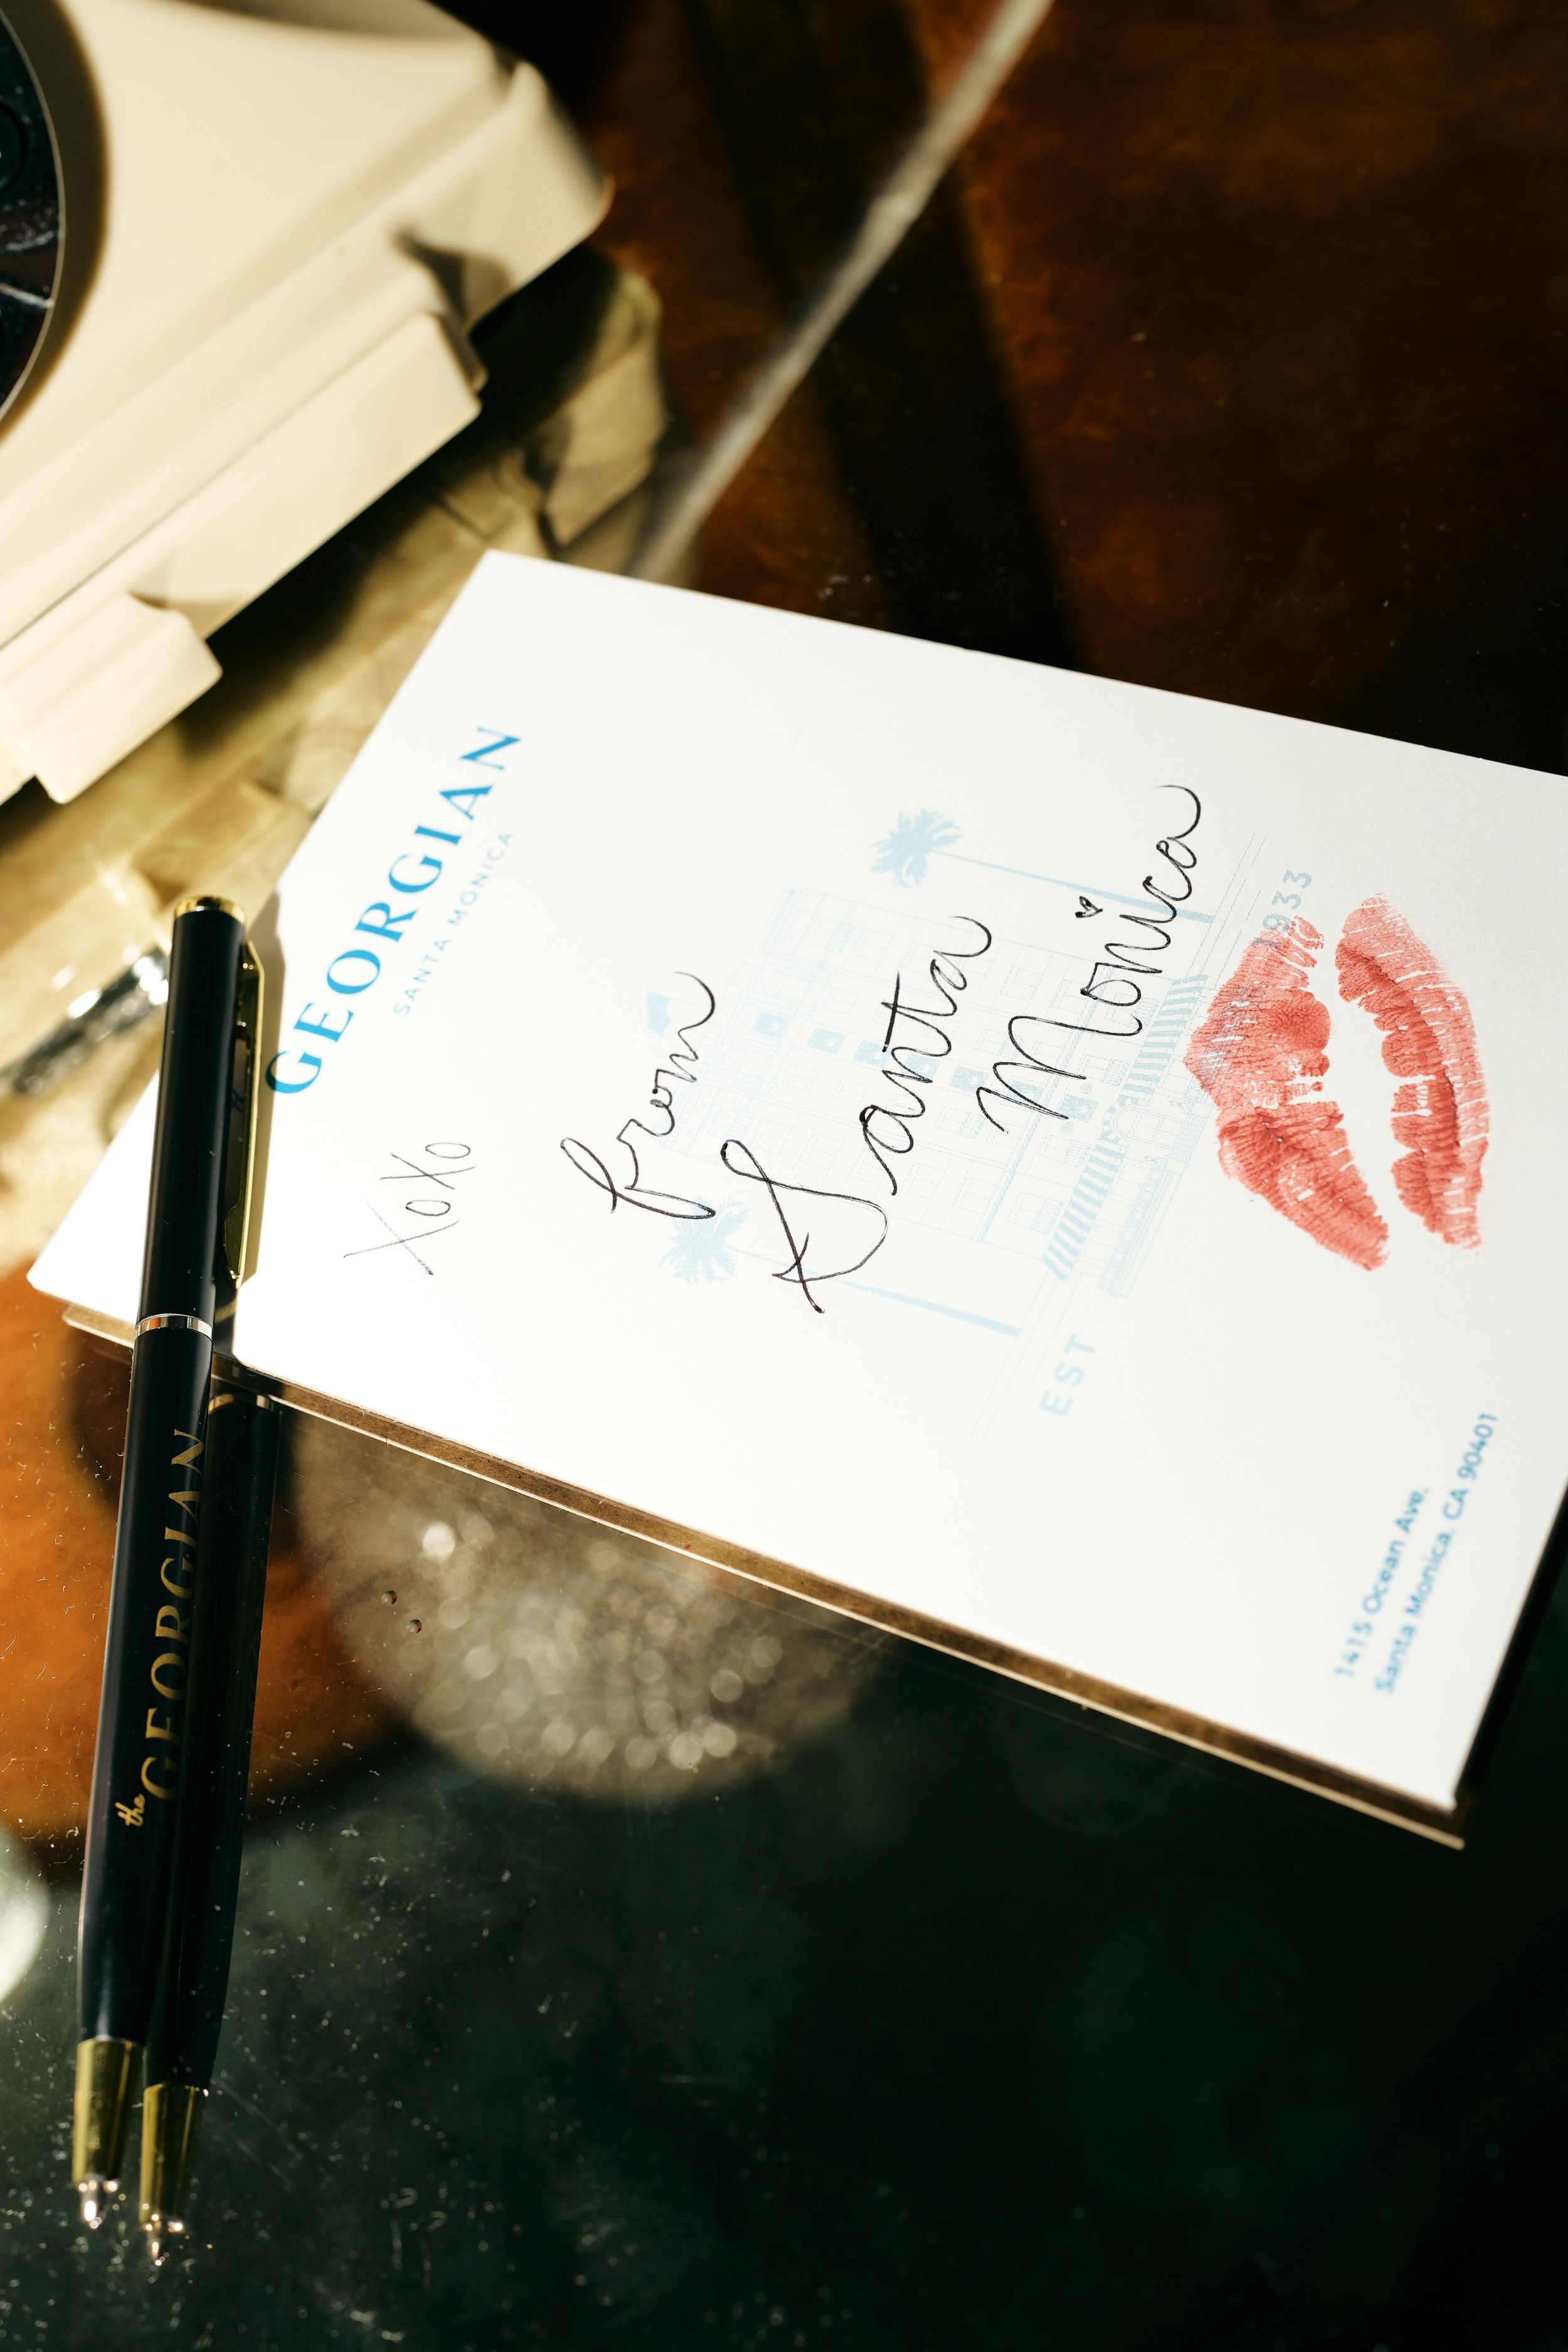 GEORGIAN
SANTA MONICA
XoXo
from
Santa
Monica
EST 1933
1415 Ocean Ave.
Santa Monica, CA 90401
the GEORGIAN